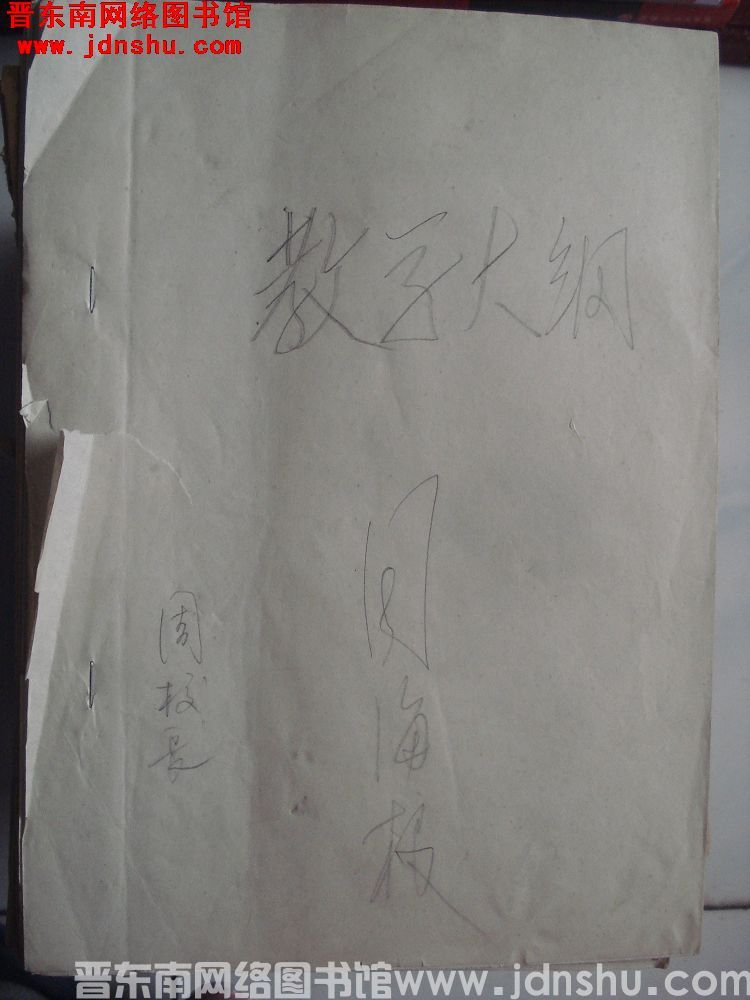 晋东南网络图书馆
www.jdnshu.com
教学大纲
周海
周校长
晋东南网络图书馆www.jdnshu.com